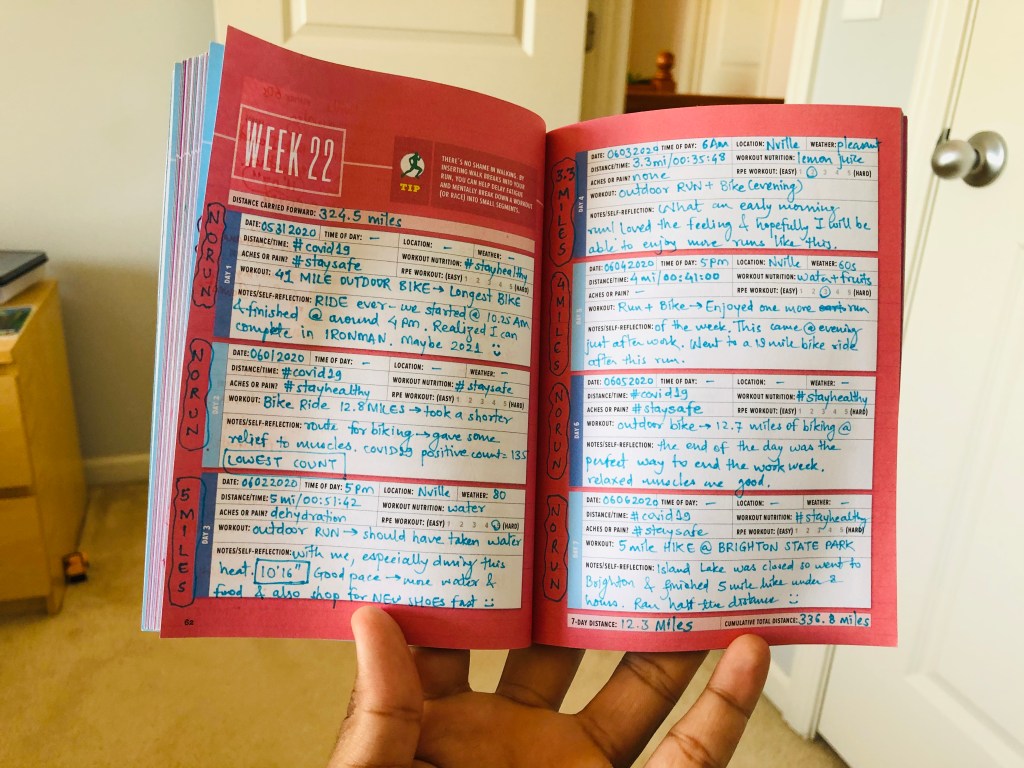 WEEK 22
TIP
THERE'S NO SHAME IN WALKING. BY
INSERTING WALK BREAKS INTO YOUR
RUN, YOU CAN HELP DELAY FATIGUE
AND MENTALLY BREAK DOWN A WORKOUT
(OR RACE) INTO SMALL SEGMENTS.
DISTANCE CARRIED FORWARD: 324.5 miles
NO RUN
DAY 1
DATE: 05312020 TIME OF DAY: – LOCATION: – WEATHER: –
DISTANCE/TIME: #covid19 WORKOUT NUTRITION: #stayhealthy
ACHES OR PAIN? #staysafe RPE WORKOUT: (EASY) 1 2 3 4 5 (HARD)
WORKOUT: 41 MILE OUTDOOR BIKE → Longest BIKE
NOTES/SELF-REFLECTION: RIDE ever - we started @ 10.25 AM
& finished @ around 4 pm. Realized I can
compete in IRONMAN. Maybe 2021
NO RUN
DAY 2
DATE: 06012020 TIME OF DAY: – LOCATION: – WEATHER: –
DISTANCE/TIME: #covid19 WORKOUT NUTRITION: #staysafe
ACHES OR PAIN? #stayhealthy RPE WORKOUT: (EASY) 1 2 3 4 5 (HARD)
WORKOUT: Bike Ride 12.8 MILES → took a shorter
NOTES/SELF-REFLECTION: route for biking → gave some
relief to muscles. COVID19 positive count = 135
LOWEST COUNT
5 MILES
DAY 3
DATE: 06022020 TIME OF DAY: 5pm LOCATION: Nville WEATHER: 80
DISTANCE/TIME: 5 mi/00:51:42 WORKOUT NUTRITION: water
ACHES OR PAIN? dehydration RPE WORKOUT: (EASY) 1 2 3 4 5 (HARD)
WORKOUT: outdoor RUN → should have taken water
NOTES/SELF-REFLECTION: with me, especially during this
heat. 10'16" Good pace → more water &
food & also shop for NEW SHOES fast
62
3.3 MILES
DAY 4
DATE: 06032020 TIME OF DAY: 6Am LOCATION: Nville WEATHER: pleasant
DISTANCE/TIME: 3.3mi/00:35:48 WORKOUT NUTRITION: lemon juice
ACHES OR PAIN? none RPE WORKOUT: (EASY) 1 2 3 4 5 (HARD)
WORKOUT: outdoor RUN + Bike (evening)
NOTES/SELF-REFLECTION: What an early morning
run! Loved the feeling & hopefully I will be
able to enjoy more runs like this.
4 MILES
DAY 5
DATE: 06042020 TIME OF DAY: 5pm LOCATION: Nville WEATHER: 60s
DISTANCE/TIME: 4mi/00:41:00 WORKOUT NUTRITION: water + fruits
ACHES OR PAIN? – RPE WORKOUT: (EASY) 1 2 3 4 5 (HARD)
WORKOUT: Run + Bike → Enjoyed one more run
NOTES/SELF-REFLECTION: of the week. This came @ evening
just after work. Went to a 13 mile bike ride
after this run.
NO RUN
DAY 6
DATE: 06052020 TIME OF DAY: – LOCATION: – WEATHER: –
DISTANCE/TIME: #covid19 WORKOUT NUTRITION: #stayhealthy
ACHES OR PAIN? #staysafe RPE WORKOUT: (EASY) 1 2 3 4 5 (HARD)
WORKOUT: outdoor bike → 12.7 miles of biking @
NOTES/SELF-REFLECTION: the end of the day was the
perfect way to end the work week.
relaxed muscles me good.
NO RUN
DAY 7
DATE: 06062020 TIME OF DAY: – LOCATION: – WEATHER: –
DISTANCE/TIME: #covid19 WORKOUT NUTRITION: #stayhealthy
ACHES OR PAIN? #staysafe RPE WORKOUT: (EASY) 1 2 3 4 5 (HARD)
WORKOUT: 5 mile HIKE @ BRIGHTON STATE PARK
NOTES/SELF-REFLECTION: Island Lake was closed so went to
Brighton & finished 5 mile hike under 2
hours. Ran half the distance
7-DAY DISTANCE: 12.3 Miles CUMULATIVE TOTAL DISTANCE: 336.8 miles